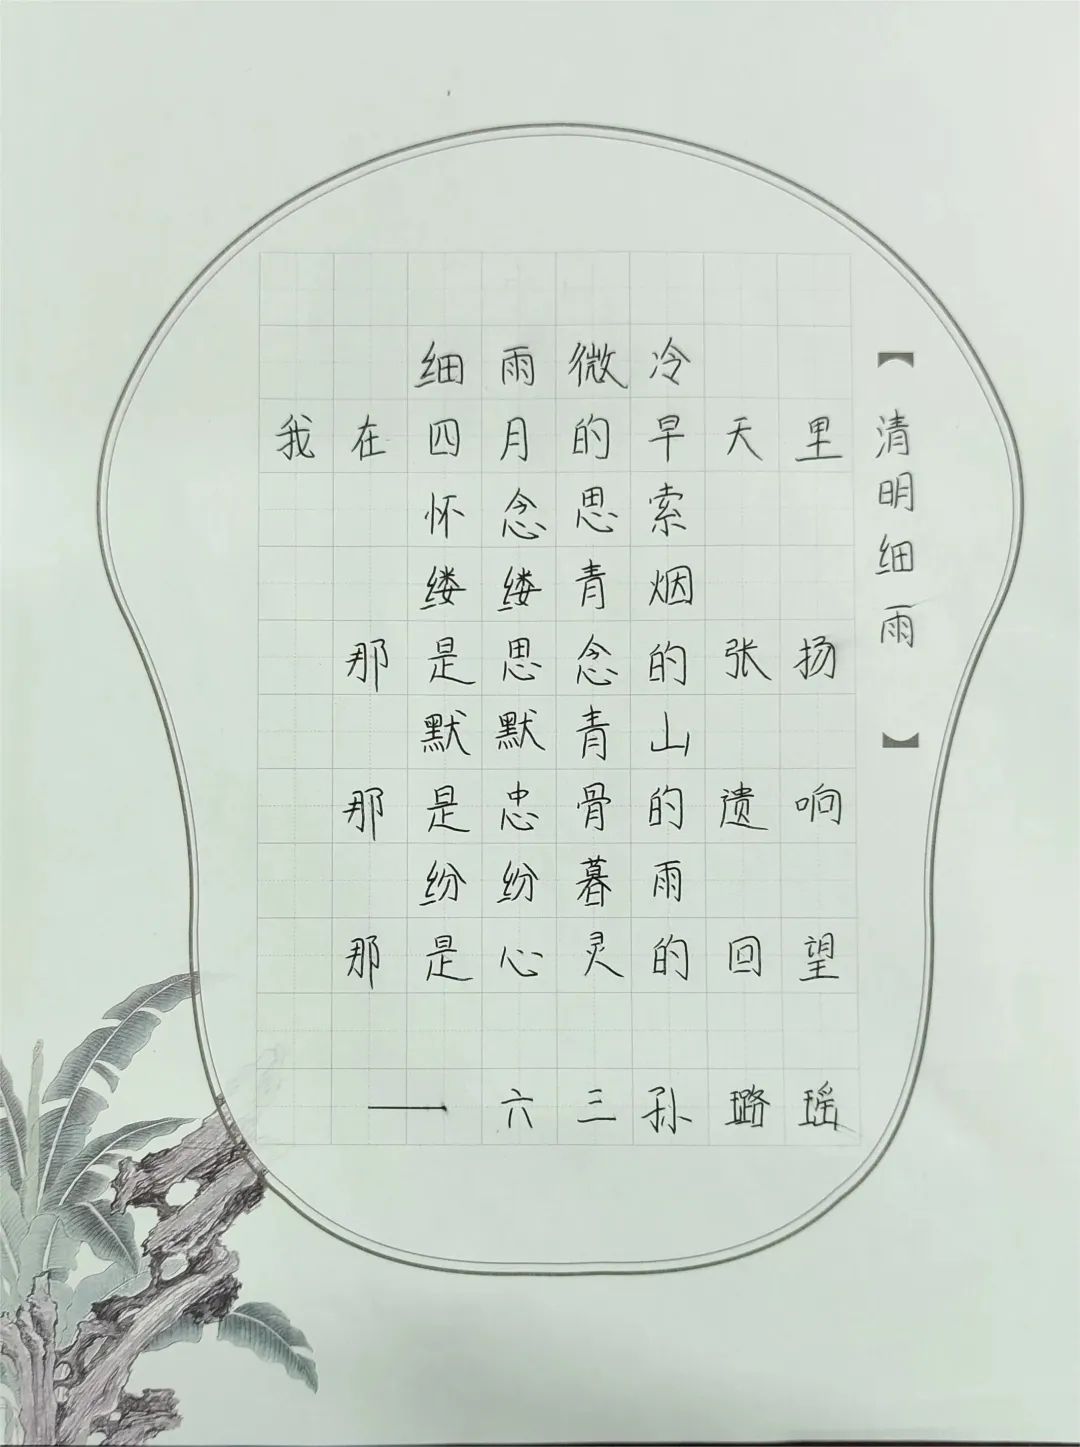 【清明细雨】
细雨微冷
我在四月的早天里
怀念思索
缕缕青烟
那是思念的张扬
默默青山
那是忠骨的遗响
纷纷暮雨
那是心灵的回望
——六三孙璐瑶